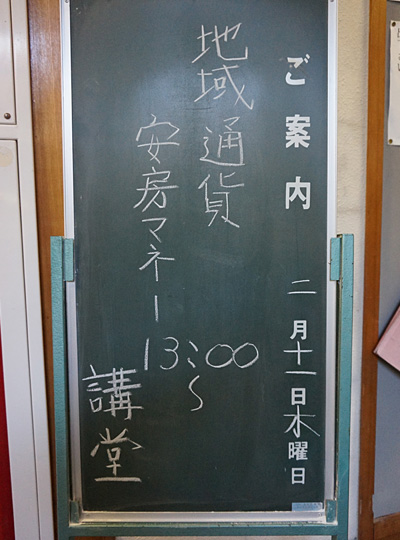 ご案内 二月十一日木曜日
地域通貨
安房マネー
13:00〜
講堂